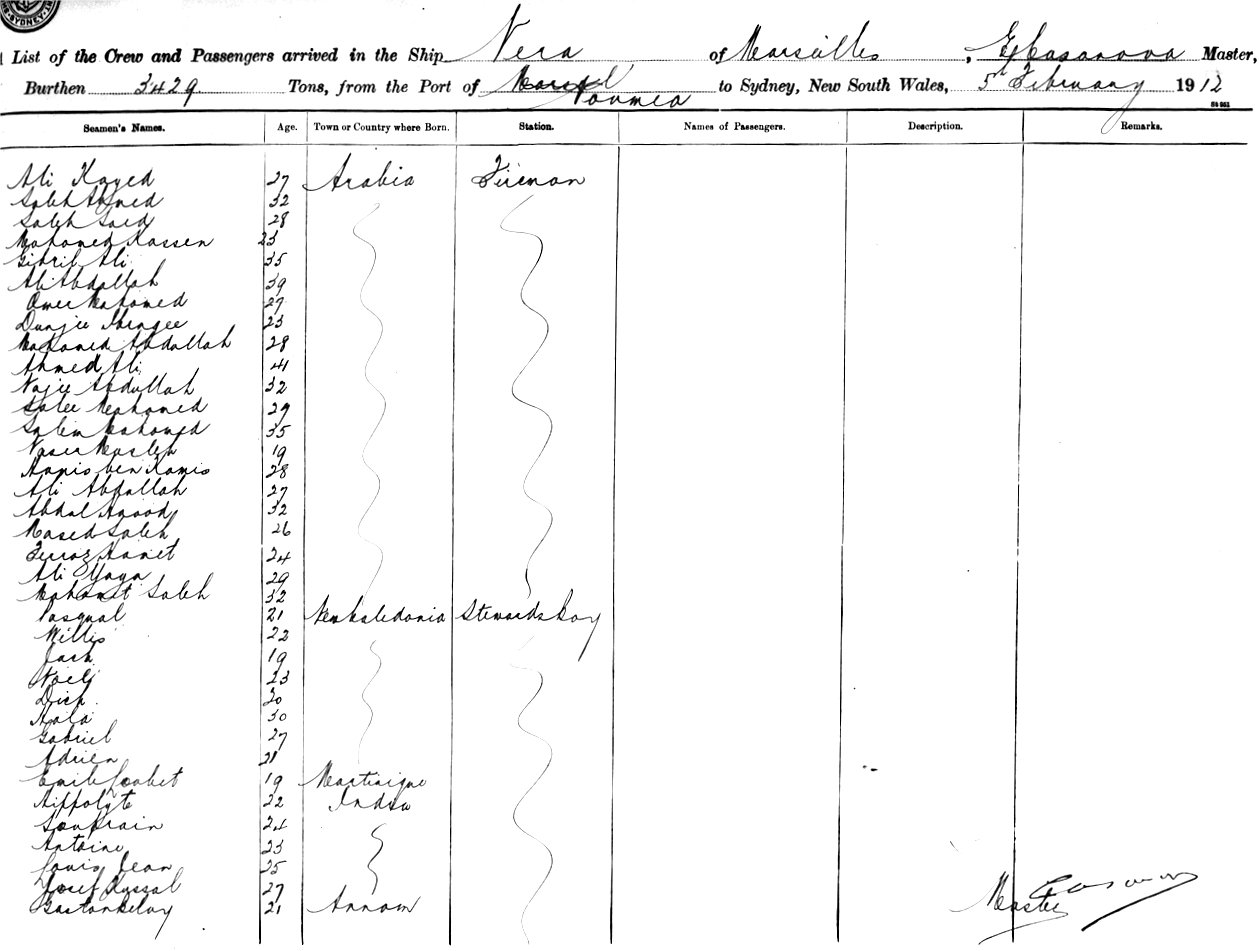 SYDNEY
List of the Crew and Passengers arrived in the Ship Nera of Marseilles, E Casanova Master,
Burthen 3429 Tons, from the Port of Noumea to Sydney, New South Wales, 5th February 1912
Seamen's Names. Age. Town or Country where Born. Station. Names of Passengers. Description. Remarks.
Ali Kayed 27 Arabia Fireman
Saleh Ahmed 32
Saleh Saed 28
Mahomed Kassen 23
Gibril Ali 35
Ali Abdallah 39
Omer Mahomed 27
Dunjee 23
Mahomed Abdallah 28
Ahmed Ali 41
Najee Abdullah 32
Salee Mahomed 29
Salem Mahomed 35
Naser Marleh 19
Hamis ben Kamis 28
Ali Abdallah 27
Abdul 32
Rased Saleh 26
Hamet 24
Ali Yaya 29
Mahomet Saleh 32
Pasqual 21 New Kaledonia Stewards boy
Willis 22
Jack 19
Noel 23
Dick 20
Kala 30
Gabriel 27
Adrien 21
Emile 19 Martinique
Hippolyte 22 India
24
Antoine 23
Louis Jean 25
Josef Kyssal 27
Gaston Delay 21 Annam
Casanova
Master